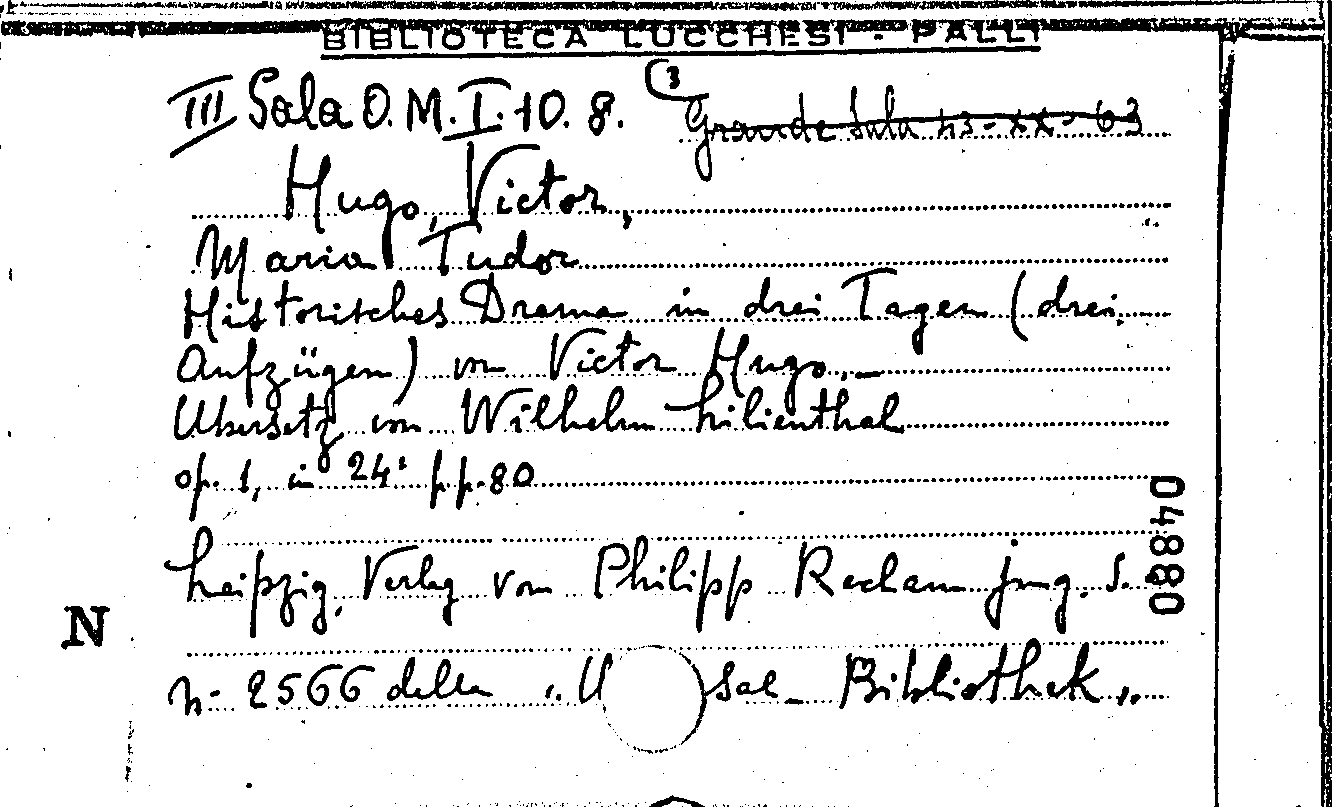 BIBLIOTECA LUCCHESI - PALLI
III Sala O. M. I. 10. 8. (3
Grande Sala 43-XX-63
Hugo, Victor,
Maria Tudor
Historisches Drama in drei Tagen (drei
Aufzügen) von Victor Hugo. —
Übersetz von Wilhelm Lilienthal
op. 1, in 24° pp. 80
Leipzig, Verlag von Philipp Reclam jung. S.
n. 2566 della "U sal- Bibliothek"
04880
N